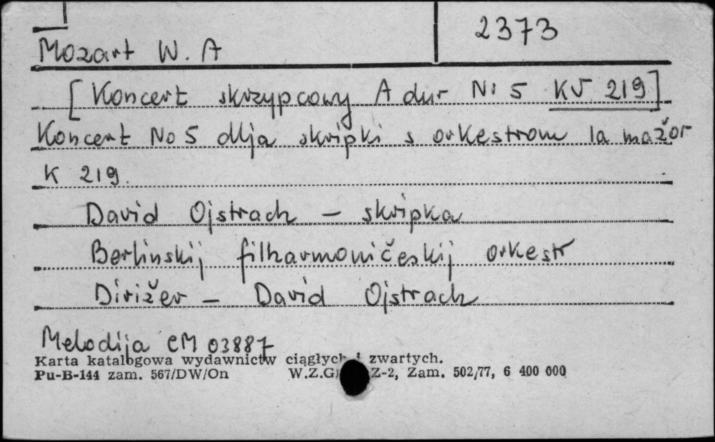 2373
Mozart W. A
[Koncert skrzypcowy A dur Nr 5 KV 219]
Koncert No 5 dlja skripki s orkestrom la mažor
K 219.
David Ojstrach – skripka
Berlinskij filharmoničeskij orkestr
Dirižer – David Ojstrach
Melodija CM 03887
Karta katalogowa wydawnictw ciągłych i zwartych.
Pu-B-144 zam. 567/DW/On W.Z.G. Z-2, Zam. 502/77, 6 400 000